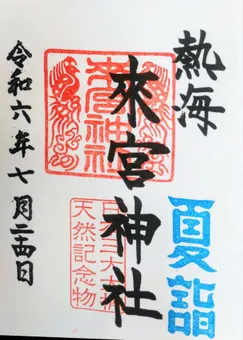 熱海
來宮神社
夏詣
令和六年七月二十四日
來宮神社
天然記念物